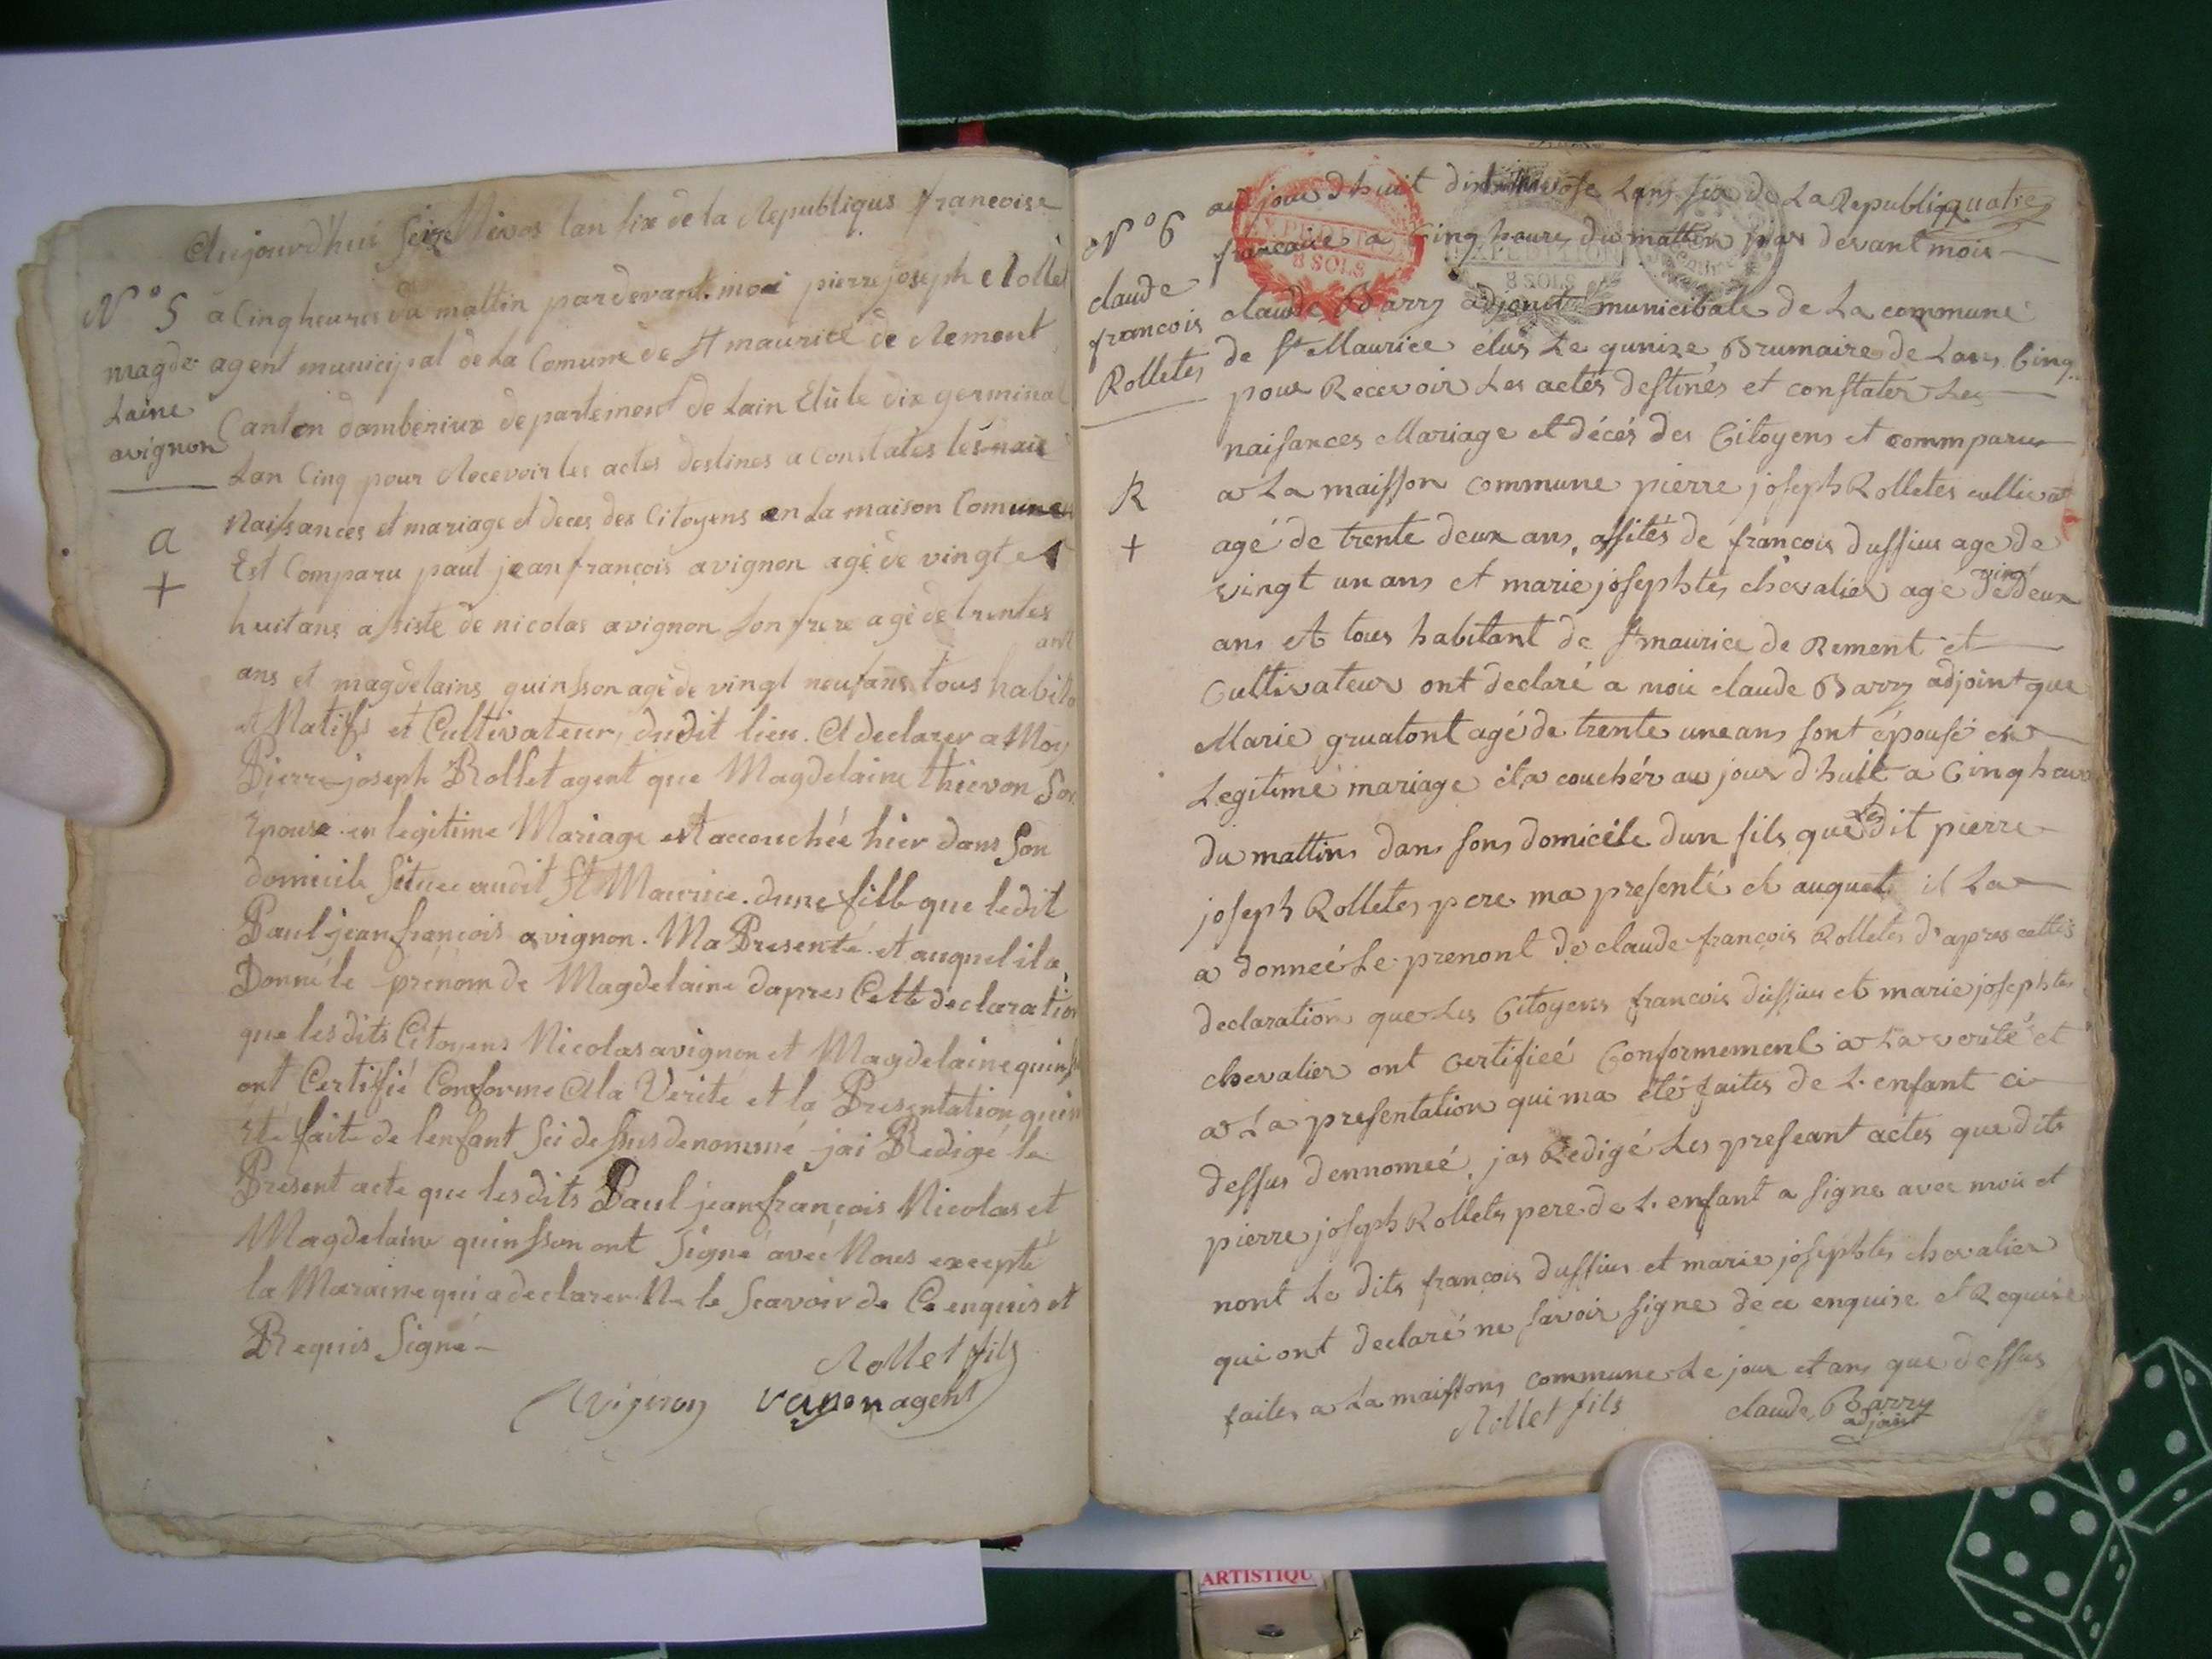 Aujourd'hui Seize Nivos lan six de la Republiqus francoise
N° 5
a Cinq heures du mattin pardevant moi pierre joseph Rollet
magde
laine
avignon
agent municipal de La Comune de St maurice de Rement
Canton damberiux departement de Lain Elû le dix germinal
Lan Cinq pour Recevoir les actes destines a Constates les nais
Naissances et mariage et deces des Citoyens en La maison Comune
a
+
Est Comparu paul jean francois avignon agé de vingt et
huit ans assisté de nicolas avignon son frere agé de trentes
ans et magdelains quinsson agé de vingt neuf ans tous habit
ant
et Natifs et Cultivateur, dudit lieu. A declarer a Moy
Pierre joseph Rollet agent que Magdelaine thievon Son
Epouse en legitime Mariage est accouchée hier dans Son
domicile Situee audit St Maurice. dune fille que ledit
Paul jean francois avignon. Ma Presenté. et auquel il a
Donné le prénom de Magdelaine dapres Cette declaration
que les dits Citoyens Nicolas avignon et Magdelaine quins
ont Certifié Conforme A la Verité et la Presentation qui m
été faite de lenfant Sci dessus denommé jai Redigé le
Present acte que les dits Paul jean francois Nicolas et
Magdelaine quinsson ont Signé avec Nous excepté
la Maraine qui a declarer Ne le Scavoir de Ce enquis et
Requis Signé
Rollet fils
agent
quatre
EXPEDITION
8 SOLS
EXPEDITION
8 SOLS
N° 6
claude
francois
Rolletes
R
+
au jour d'huit dix nivose Lans six de La Republique
francaise a Cinq heures du mattin par devant moie
claude Barry adjoint municibale de La commune
de St Maurice élus Le qunize Brumaire de Lans Cinq
pour Recevoir Les actes destinés et constater Les
naisances Mariage et décés des Citoyens et commparu
a La maisson commune pierre joseph Rolletes cultivat
agé de trente deux ans, assités de francois dussius age de
vingt un ans et marie josephtes chevalier agé de vingt deux
ans et tous habitant de St maurice de Rement et
Cultivateur ont declaré a moie claude Barry adjoint que
Marie gruatont agé de trente une ans sont épousé en
Legitime mariage et a couchér au jour d'huit a Cinq heur
du mattins dans sons domicile dun fils que Les dit pierre
joseph Rolletes pere ma presenté et auquel il La
a donneé Le prenont de claude francois Rolletes d'apres cettes
declaration que Les Citoyens francois dussius et marie josephtes
chevalier ont certifieé Conformement a La verité et
a La presentation qui ma été faites de L'enfant ci
dessus dennomeé jas Redigé Les preseant actes que dits
pierre joseph Rolletes pere de L'enfant a signe avec moie et
nont Le dits francois dussius et marie josephtes chevalier
qui ont declaré ne savoir signe de ce enquise et Requise
faites a La maissons commune Le jour et ans que dessus
Rollet fils claude Barry
adjoint
ARTISTIQU